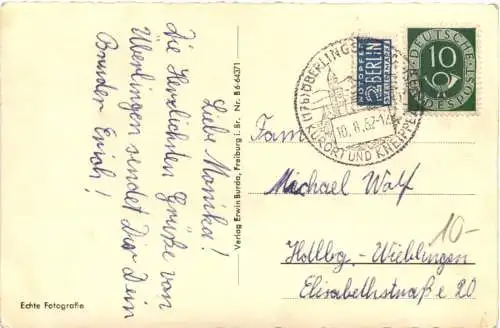 Liebe Monika!
Die Herzlichsten Grüße von
Überlingen sendet Dir Dein
Bruder Erich!
Echte Fotografie
Verlag Erwin Burda, Freiburg i. Br. Nr. B 6 44371
(17b) ÜBERLINGEN
10.8.52-12
KURORT UND KNEIPP
NOTOPFER
2 BERLIN
STEUERMARKE
DEUTSCHE
BUNDESPOST
10
Fam
Michael Wolf
Hdlbg.-Wieblingen
Elisabethstraße 20
10-